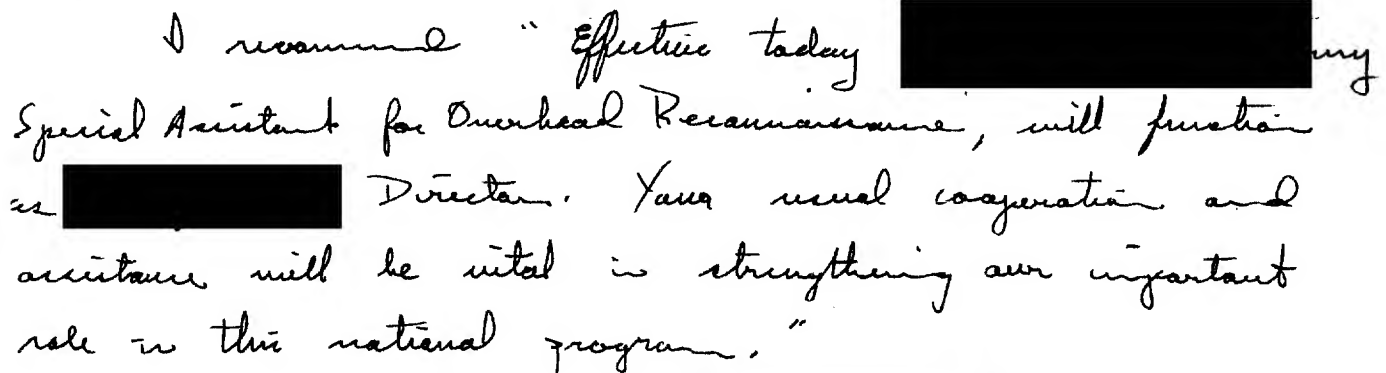 I recommend "Effective today my
Special Assistant for Overhead Reconnaissance, will function
as Director. Your usual cooperation and
assistance will be vital in strengthening our important
role in this national program."